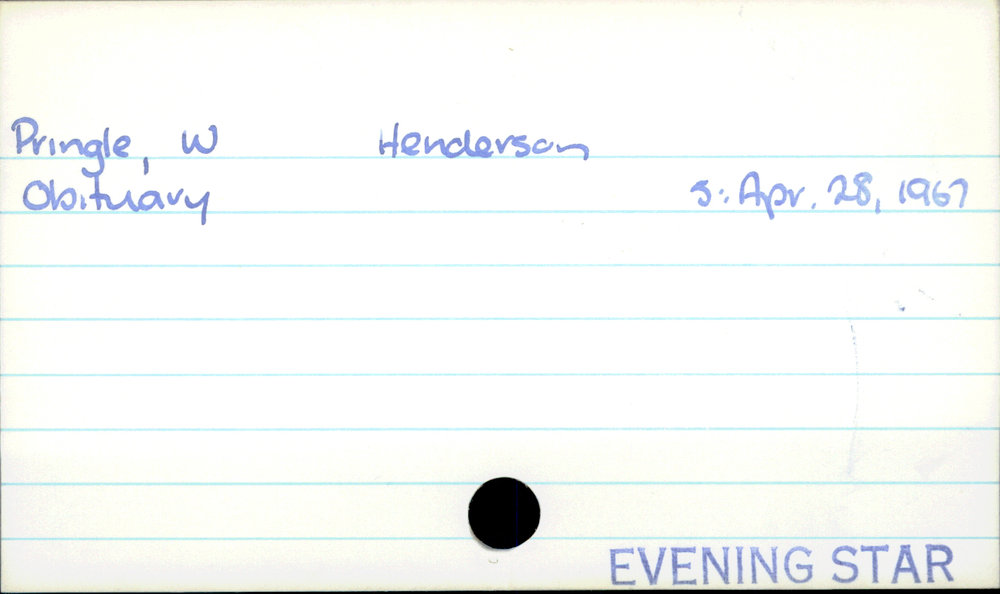 Pringle, W Henderson
Obituary S: Apr. 28, 1967
EVENING STAR